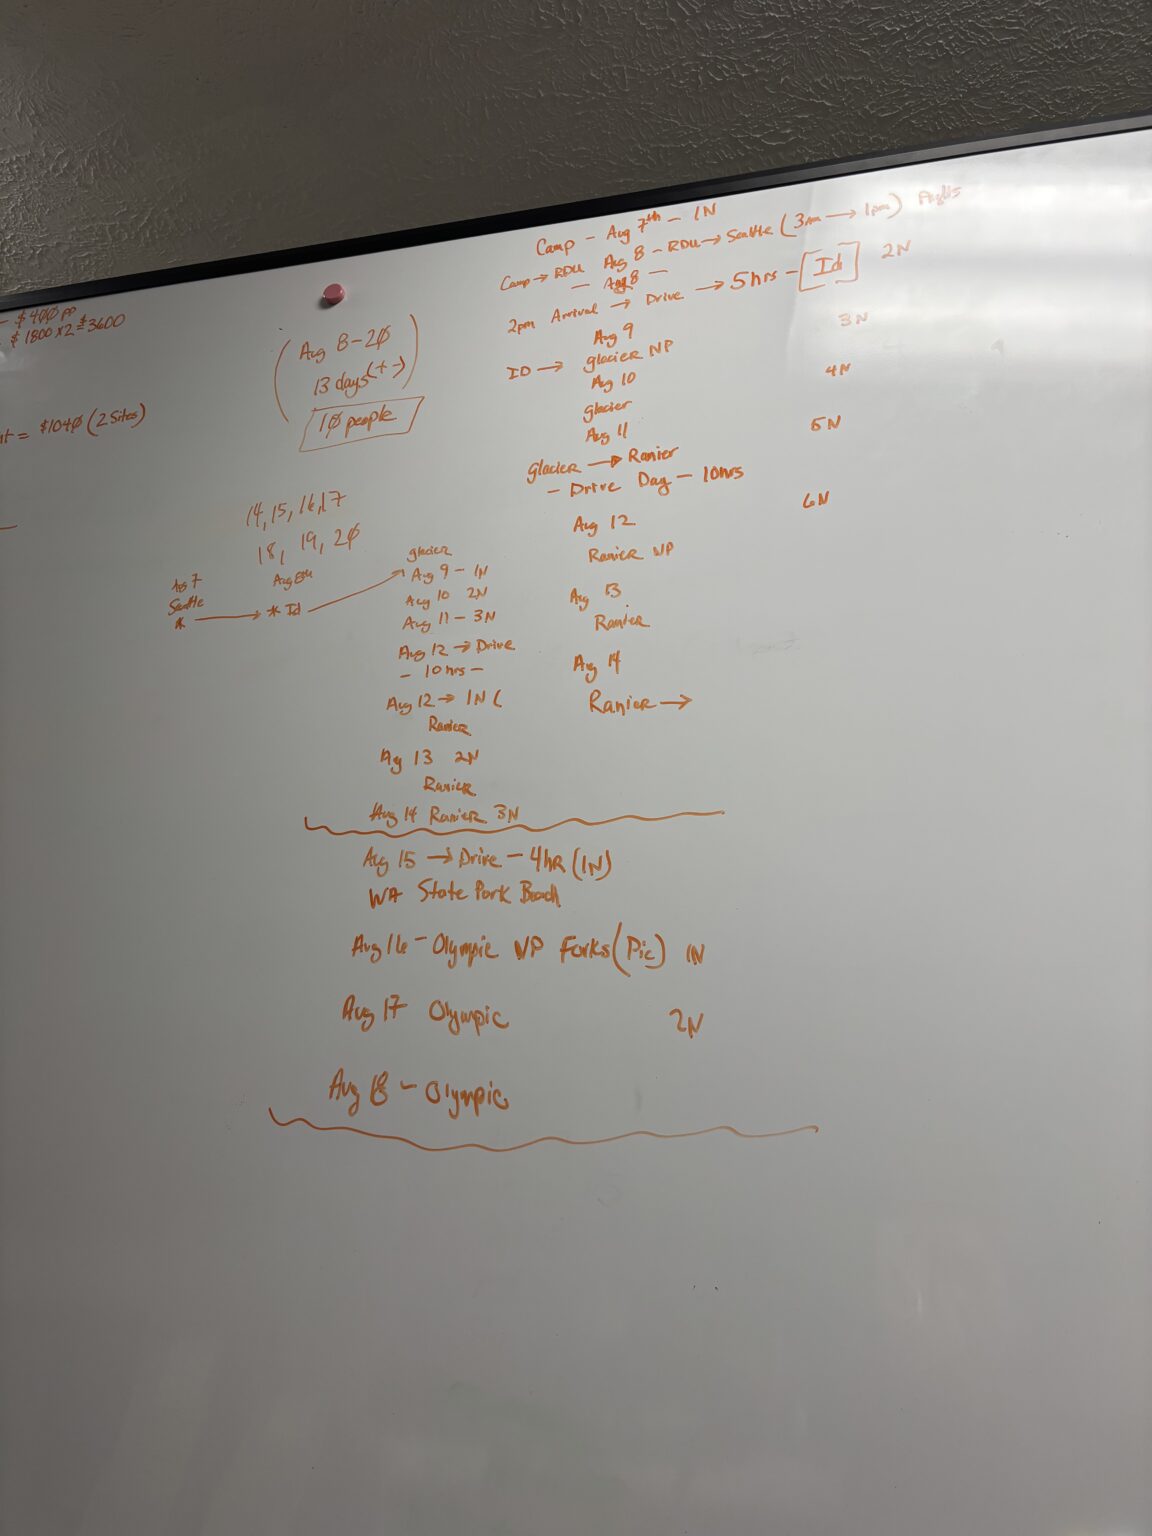 - $400 pp
- $1800 x 2 = $3600
= $1040 (2 Sites)
(Aug 8-20
13 days (+-))
10 people
14, 15, 16, 17
18, 19, 20
Aug 7
Seattle
* →
Aug 8th
* Id →
glacier
Aug 9 - 1N
Aug 10 2N
Aug 11 - 3N
Aug 12 → Drive
- 10 hrs -
Aug 12 → 1N (
Ranier
Aug 13 2N
Ranier
Aug 14 Ranier 3N
Aug 15 → Drive - 4hr (1N)
WA State Park Beach
Aug 16 - Olympic NP Forks (Pic) 1N
Aug 17 Olympic 2N
Aug 18 - Olympic
Camp - Aug 7th - 1N
Camp → RDU Aug 8 - RDU → Seattle (3am → 1pm) Flights
- Aug 8 -
2pm Arrival → Drive → 5hrs - [Id] 2N
Aug 9 3N
ID → glacier NP
Aug 10 4N
glacier
Aug 11 5N
glacier → Ranier
- Drive Day - 10hrs
Aug 12 6N
Ranier NP
Aug 13
Ranier
Aug 14
Ranier →